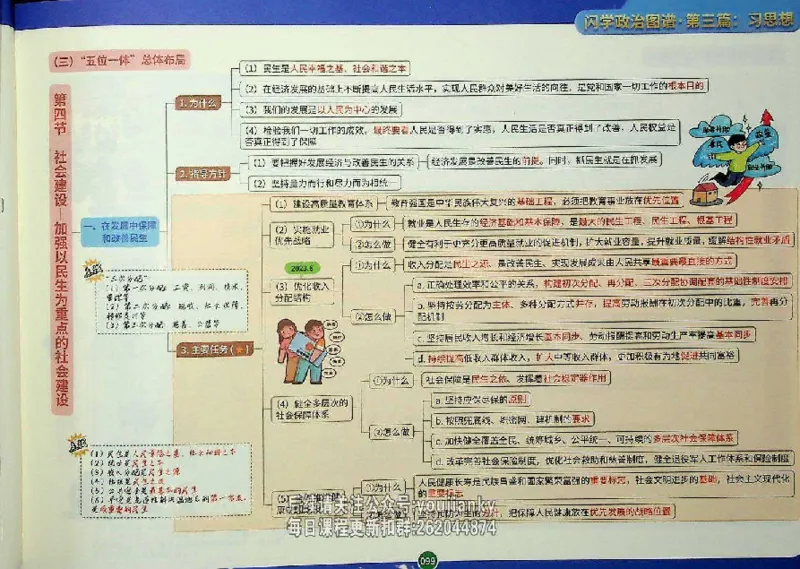 闪学政治图谱·第三篇：习思想
（三）“五位一体”总体布局
第四节 社会建设—加强以民生为重点的社会建设
一、在发展中保障
和改善民生
1.为什么
（1）民生是人民幸福之基、社会和谐之本
（2）在经济发展的基础上不断提高人民生活水平，实现人民群众对美好生活的向往，是党和国家一切工作的根本目的
（3）我们的发展是以人民为中心的发展
（4）检验我们一切工作的成效，最终要看人民是否得到了实惠，人民生活是否真正得到了改善，人民权益是
否真正得到了保障
2.指导方针
（1）要把握好发展经济与改善民生的关系
经济发展是改善民生的前提。同时，抓民生就是在抓发展
（2）坚持量力而行和尽力而为相统一
3.主要任务（★）
（1）建设高质量教育体系
教育强国是中华民族伟大复兴的基础工程，必须把教育事业放在优先位置
（2）实施就业
优先战略
①为什么
就业是人民生存的经济基础和基本保障，是最大的民生工程、民心工程、根基工程
②怎么做
健全有利于更充分更高质量就业的促进机制，扩大就业容量，提升就业质量，缓解结构性就业矛盾
2023.6
（3）优化收入
分配结构
①为什么
收入分配是民生之源，是改善民生、实现发展成果由人民共享最重要最直接的方式
②怎么做
a.正确处理效率和公平的关系，构建初次分配、再分配、三次分配协调配套的基础性制度安排
b.坚持按劳分配为主体、多种分配方式并存，提高劳动报酬在初次分配中的比重，完善再分
配机制
c.坚持居民收入增长和经济增长基本同步、劳动报酬提高和劳动生产率提高基本同步
d.持续提高低收入群体收入，扩大中等收入群体，更加积极有为地促进共同富裕
（4）健全多层次的
社会保障体系
①为什么
社会保障是民生之依，发挥着社会稳定等作用
②怎么做
a.坚持应保尽保的原则
b.按照兜底线、织密网、建机制的要求
c.加快健全覆盖全民、统筹城乡、公平统一、可持续的多层次社会保障体系
d.改革完善社会保险制度，优化社会救助和慈善制度，健全退役军人工作体系和保险制度
①为什么
人民健康长寿是民族昌盛和国家繁荣富强的重要标志，社会文明进步的基础，社会主义现代化
的重要标志
把保障人民健康放在优先发展的战略位置
“三次分配”
（1）第一次分配：工资、利润、
（2）第二次分配：税收、社会保障、
转移支付等
（3）第三次分配：慈善、公益等
（1）民生是人民幸福之基、社会和谐之本
（2）就业是民生之本
（3）收入分配是民生之源
（4）社保是民生之依
请关注公众号:youlianky
每日课程更新扣群:262044874
099